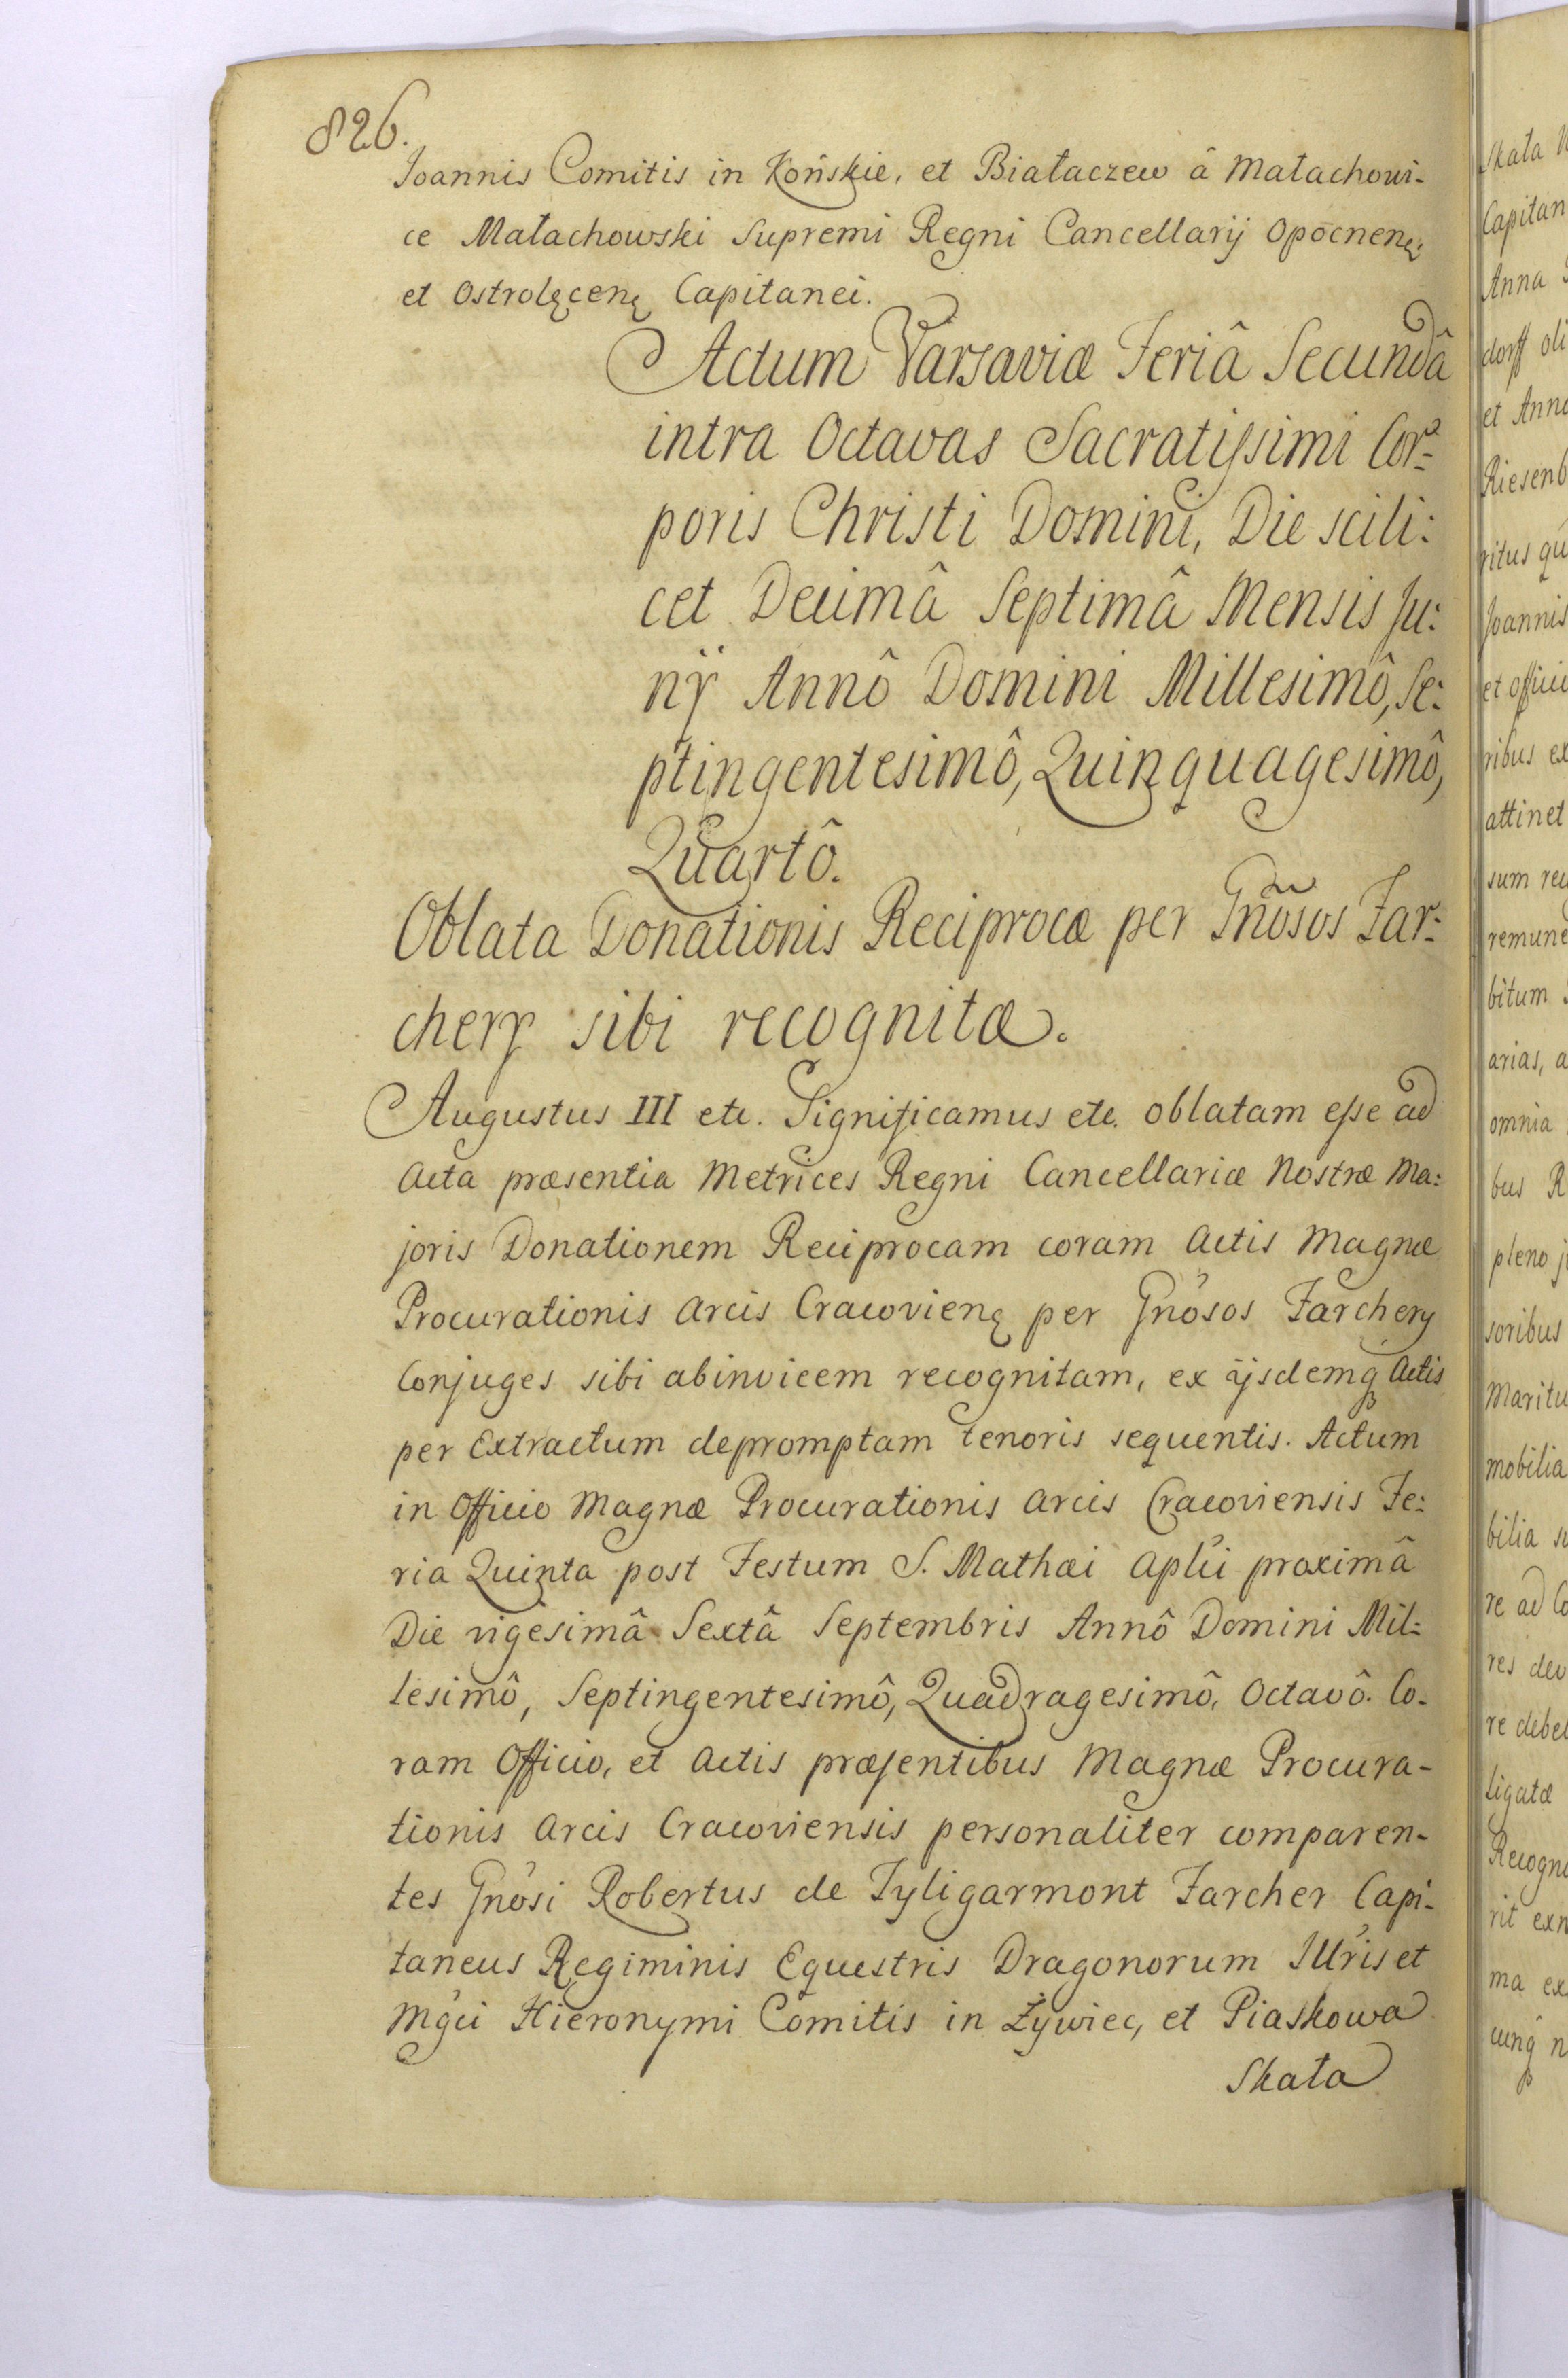 826.
Joannis Comitis in Końskie, et Białaczew â Małachowi-
ce Małachowski Supremi Regni Cancellarij Opocnenę:
et Ostrolęcenę Capitanei.
Actum Varsaviæ Feriâ Secundâ
intra Octavas Sacratissimi Cor=
poris Christi Domini, Die scili:
cet Decimâ Septimâ Mensis Ju:
nij Annô Domini Millesimô, Se:
ptingentesimô, Quinquagesimô,
Quartô.
Oblata Donationis Reciprocæ per Gnõsos Far:
chery sibi recognitæ.
Augustus III etc. Significamus etc. oblatam esse ad
Acta præsentia Metrices Regni Cancellariæ Nostræ Ma:
joris Donationem Reciprocam coram Actis Magnæ
Procurationis Arcis Cracovienę per Gnõsos Farchery
Conjuges sibi abinvicem recognitam, ex ijsdemq Actis
per Extractum depromptam tenoris sequentis. Actum
in Officio Magnæ Procurationis Arcis Cracoviensis Fe:
ria Quinta post Festum S. Mathæi Aplĩ proximâ
Die vigesimâ Sextâ Septembris Annô Domini Mil=
lesimô, Septingentesimô, Quadragesimô, Octavô. Co-
ram Officio, et Actis præsentibus Magnæ Procura-
tionis Arcis Cracoviensis personaliter comparen-
tes Gnõsi Robertus de Fyligarmont Farcher Capi-
taneus Regiminis Equestris Dragonorum Illris et
Mgci Hieronymi Comitis in Żywiec, et Piaskowa
Skała
Skała
Capitan
Anna
dorff oli
et Anna
Riesenb
ritus qu
Joannis
et offici
ribus ex
attinet
sum
remune
bitum
arias, a
omnia
bus R
pleno j
soribus
Maritu
mobilia
bilia su
re ad Co
res dev
re debe
ligatæ
Recogn
rit exn
ma ex
cunq n